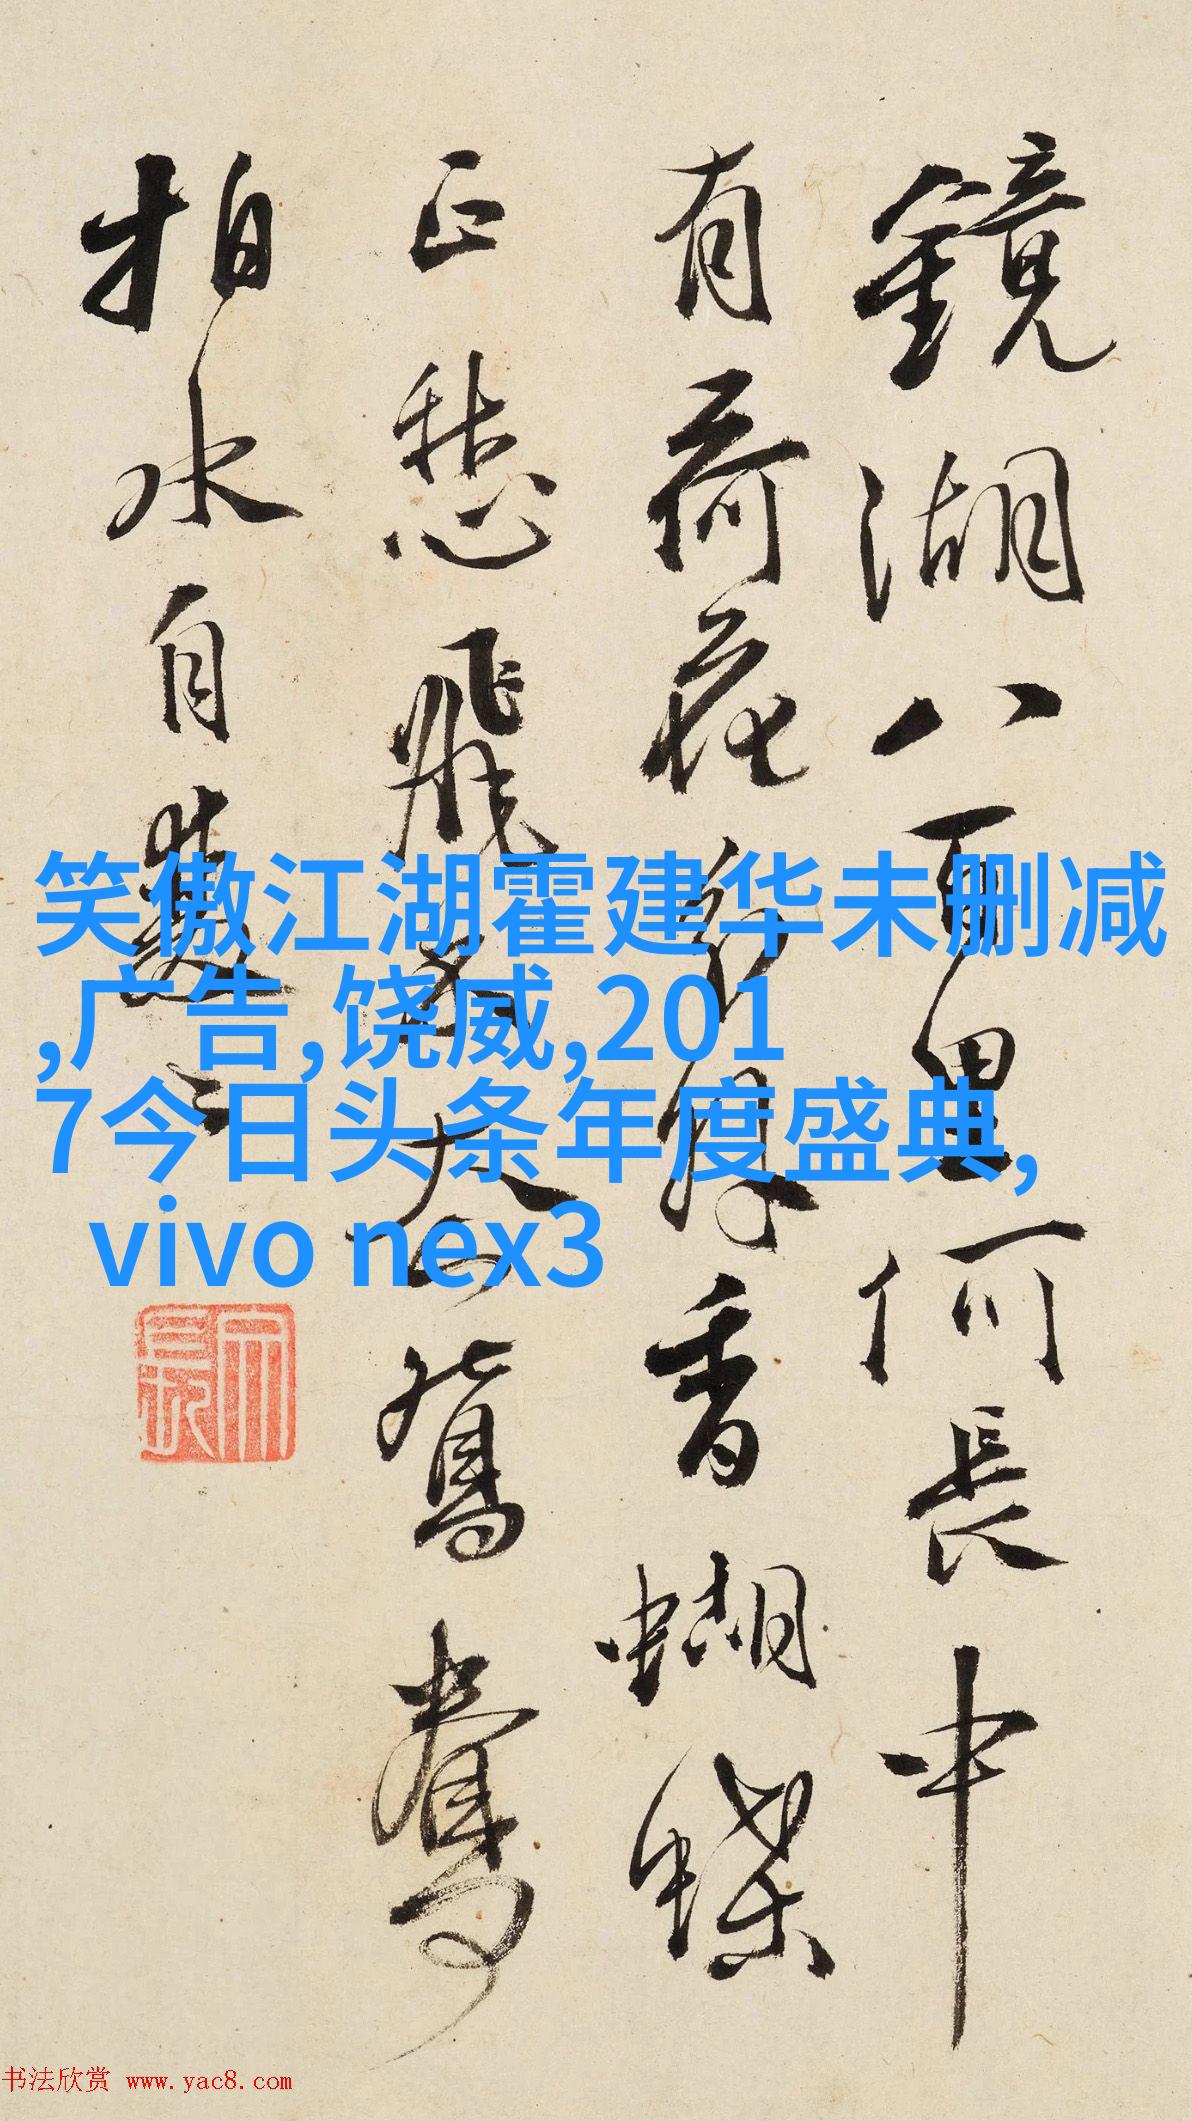 鏡湖八百里何長中
有荷花香蝴蝶
正愁飛不去鴛鴦
拍水自雙〻
笑傲江湖霍建华未删减
,广告,饶威,201
7今日头条年度盛典,
vivo nex3
书法欣赏 www.yac8.com